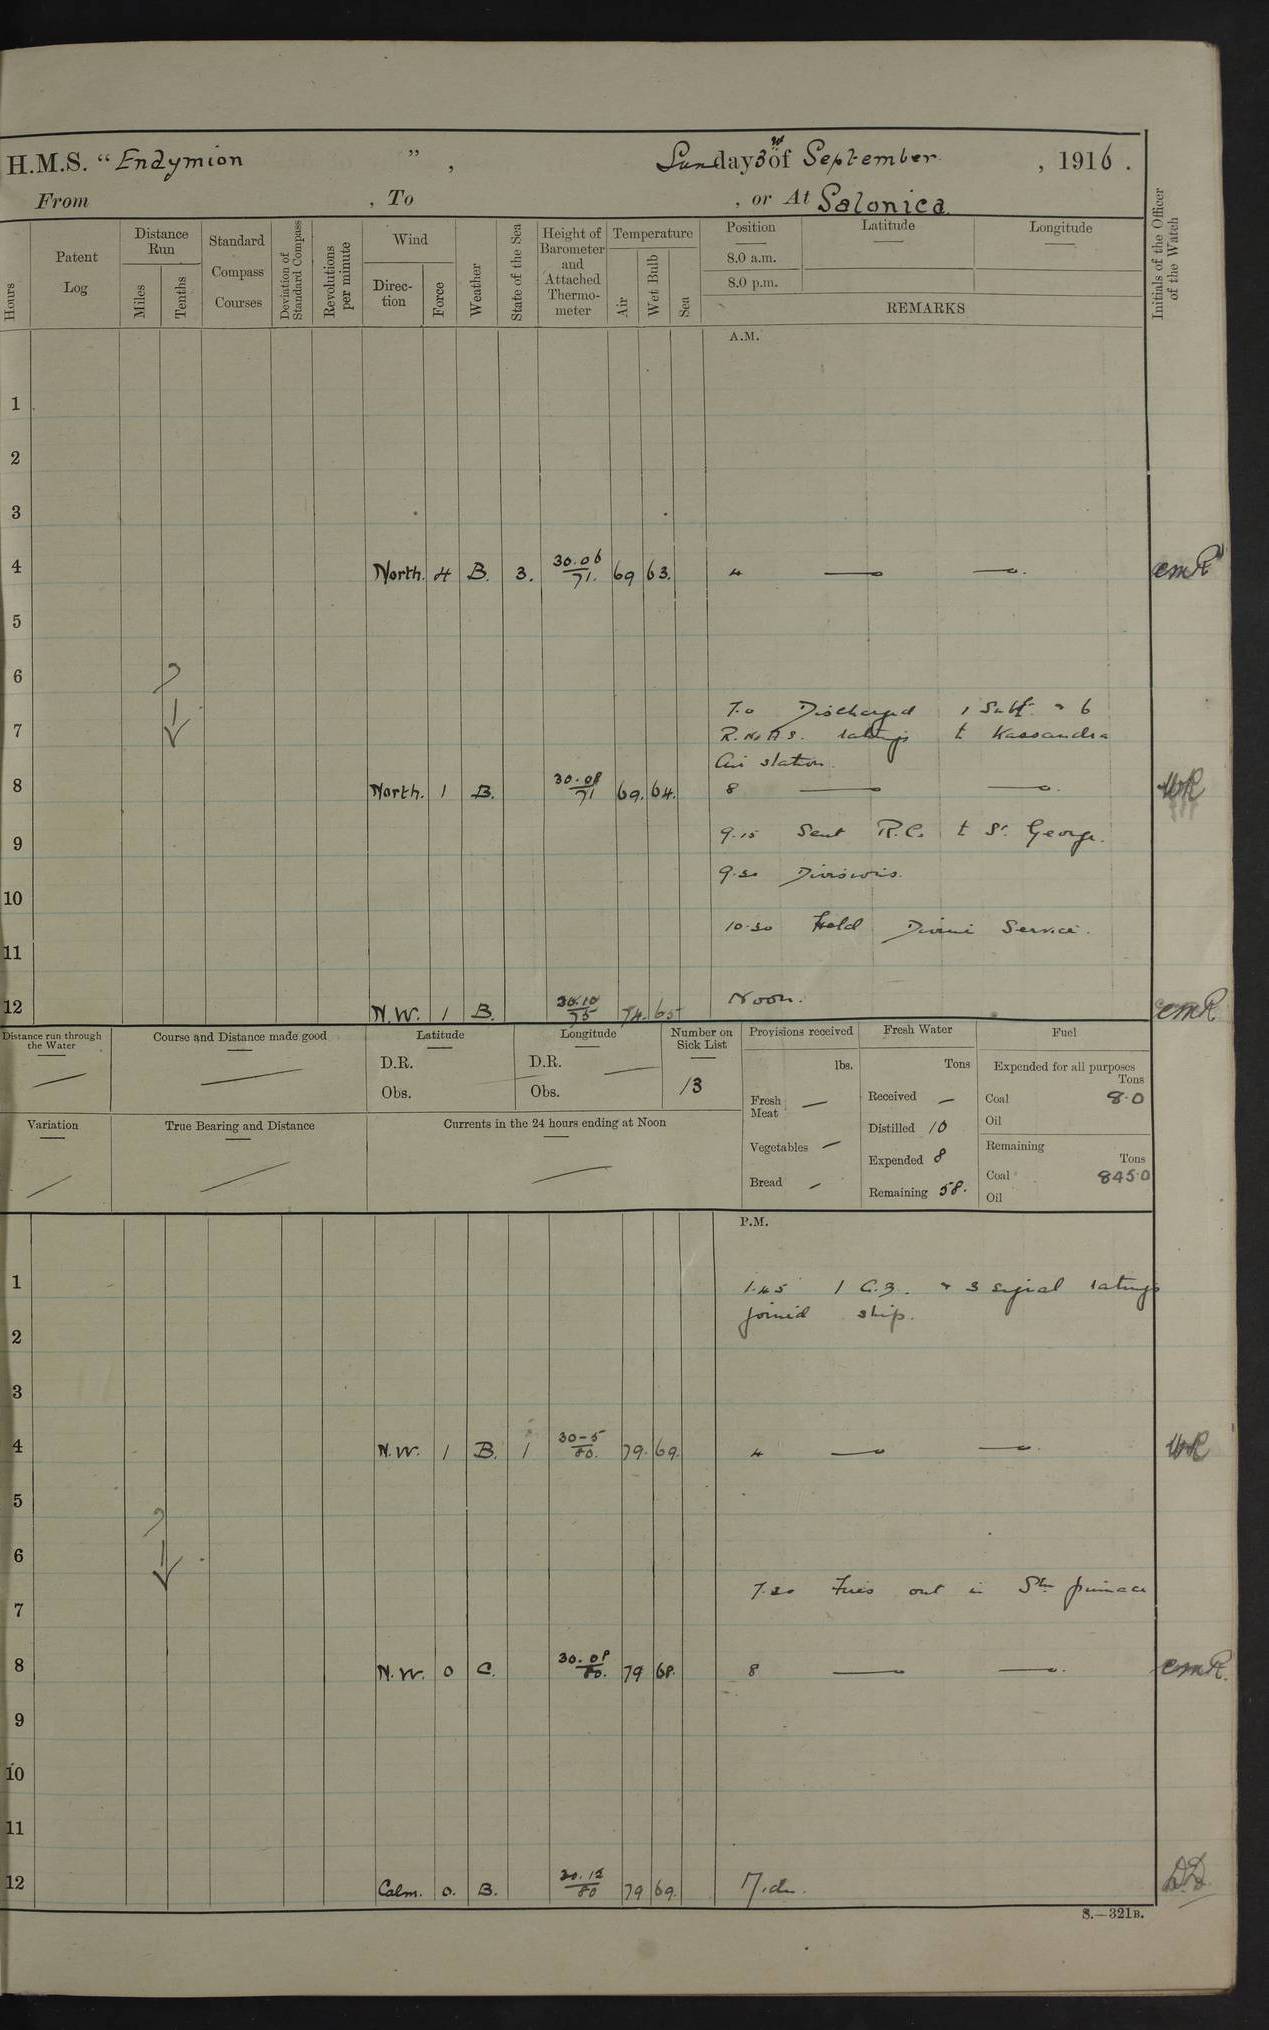 H.M.S. "Endymion", Sunday 3rd of September, 1916.
From , To , or At Salonica
Hours
Patent Log
Distance Run
Miles
Tenths
Standard Compass Courses
Deviation of Standard Compass
Revolutions per minute
Wind
Direction
Force
Weather
State of the Sea
Height of Barometer and Attached Thermometer
Temperature
Air
Wet Bulb
Sea
Position
8.0 a.m.
8.0 p.m.
Latitude
Longitude
REMARKS
Initials of the Officer of the Watch
A.M.
1
2
3
4 North. 4 B. 3. 30.06 71. 69 63. 4 — —. CMR
5
6
7.0 Discharged 1 Sub Lt & 6
7 R.N.A.S. ratings to Kassandra
Air station.
8 North. 1 B. 30.08 71 69. 64. 8 — —.
9 9.15 Sent R.C. to St. George.
9.30 Divisions.
10
10.30 Held Divine Service.
11
12 N.W. 1 B. 30.10 75 74. 65 Noon. CMR
Distance run through the Water
—
Course and Distance made good
—
Latitude
D.R.
Obs.
Longitude
D.R. —
Obs.
Number on Sick List
13
Provisions received
lbs.
Fresh Meat —
Vegetables —
Bread —
Fresh Water
Tons
Received —
Distilled 10
Expended 8
Remaining 58.
Fuel
Expended for all purposes
Tons
Coal 8.0
Oil
Remaining
Tons
Coal 845.0
Oil
Variation
—
True Bearing and Distance
—
Currents in the 24 hours ending at Noon
—
P.M.
1 1.45 1 C.B. & 3 signal ratings
joined ship.
2
3
4 N.W. 1 B. 1 30-5 80. 79. 69. 4 — —.
5
6
7.30 Fires out in Stm pinnace
7
8 N.W. 0 C. 30.08 80. 79 68. 8 — —. CMR.
9
10
11
12 Calm. 0. B. 30.12 80 79 69. Mid. DD.
S.—321B.